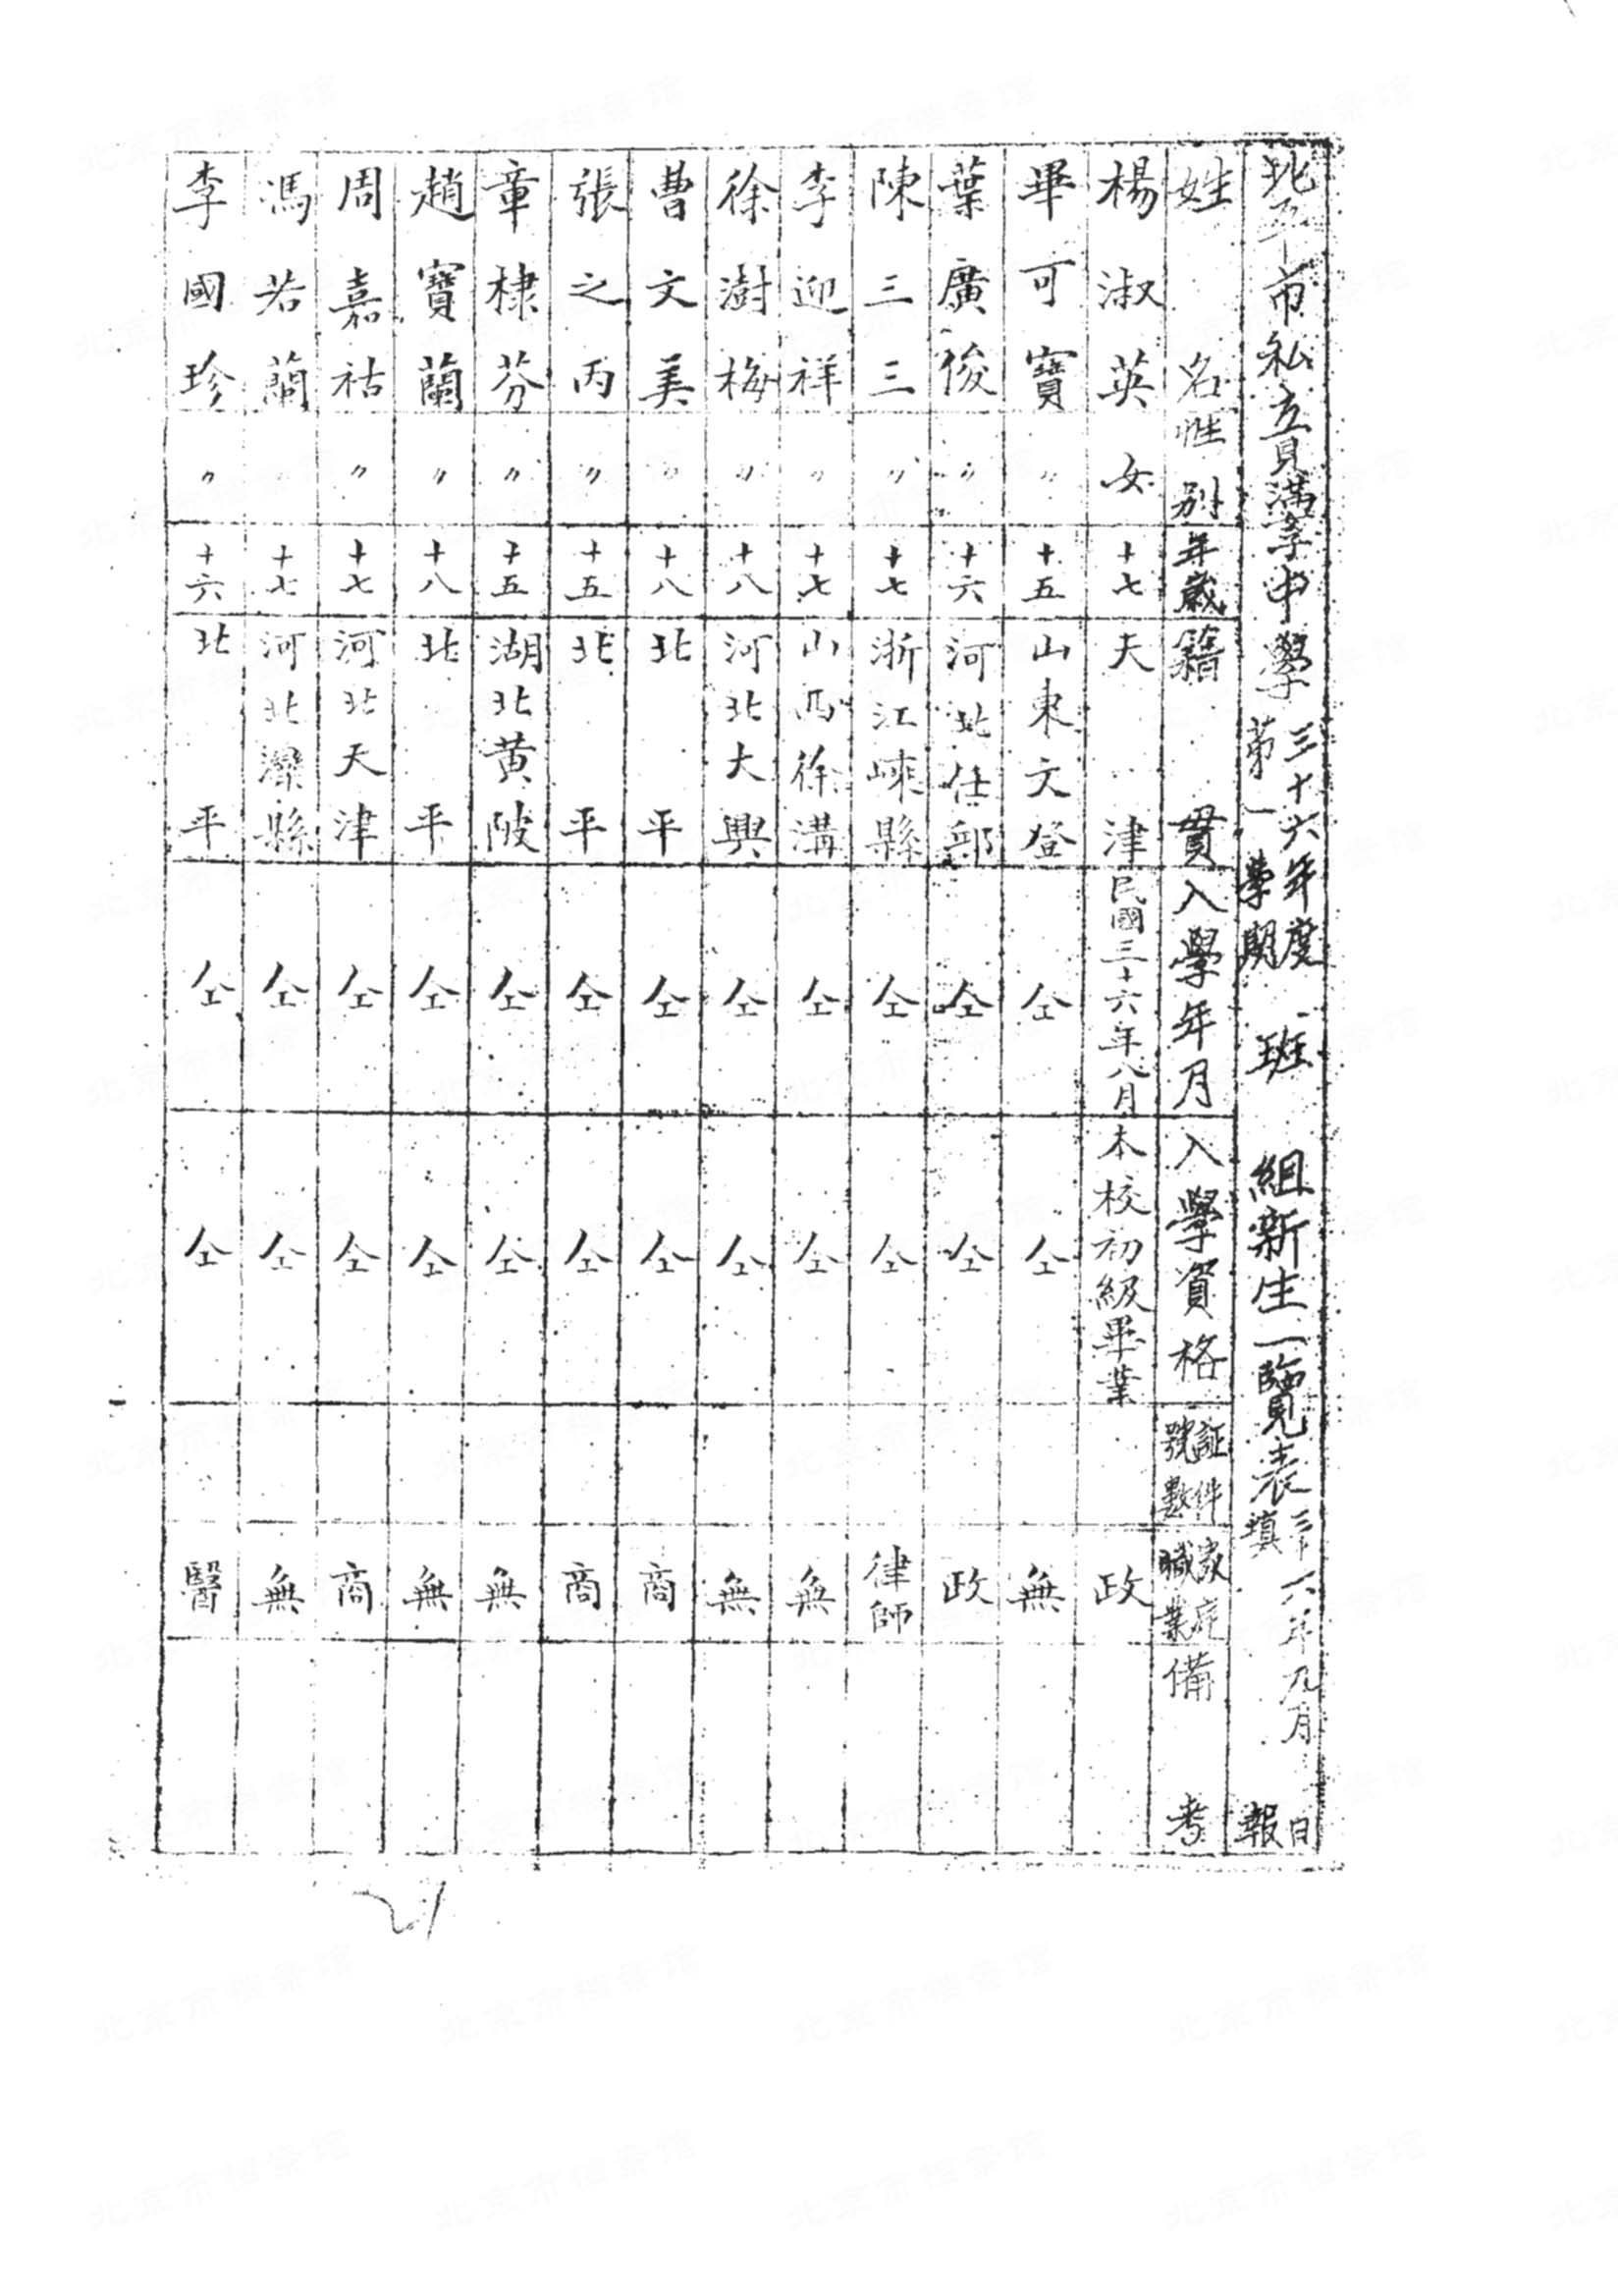 北平市私立貝滿女中學 三十六年度 第一學期 班 組新生一覽表 三十六年九月 日 填報
姓名 性別 年歲 籍貫 入學年月 入學資格 証件號數 家庭職業 備考
楊淑英 女 十七 天津 民國三十六年八月 本校初級畢業 政
畢可寶 〃 十五 山東文登 仝 仝 無
葉廣俊 〃 十六 河北任邱 仝 仝 政
陳三三 〃 十七 浙江嵊縣 仝 仝 律師
李迎祥 〃 十七 山西徐溝 仝 仝 無
徐澍梅 〃 十八 河北大興 仝 仝 無
曹文美 〃 十八 北平 仝 仝 商
張之丙 〃 十五 北平 仝 仝 商
章棣芬 〃 十五 湖北黃陂 仝 仝 無
趙寶蘭 〃 十八 北平 仝 仝 無
周嘉祜 〃 十七 河北天津 仝 仝 商
馮若蘭 十七 河北灤縣 仝 仝 無
李國珍 〃 十六 北平 仝 仝 醫
21
北京市档案馆